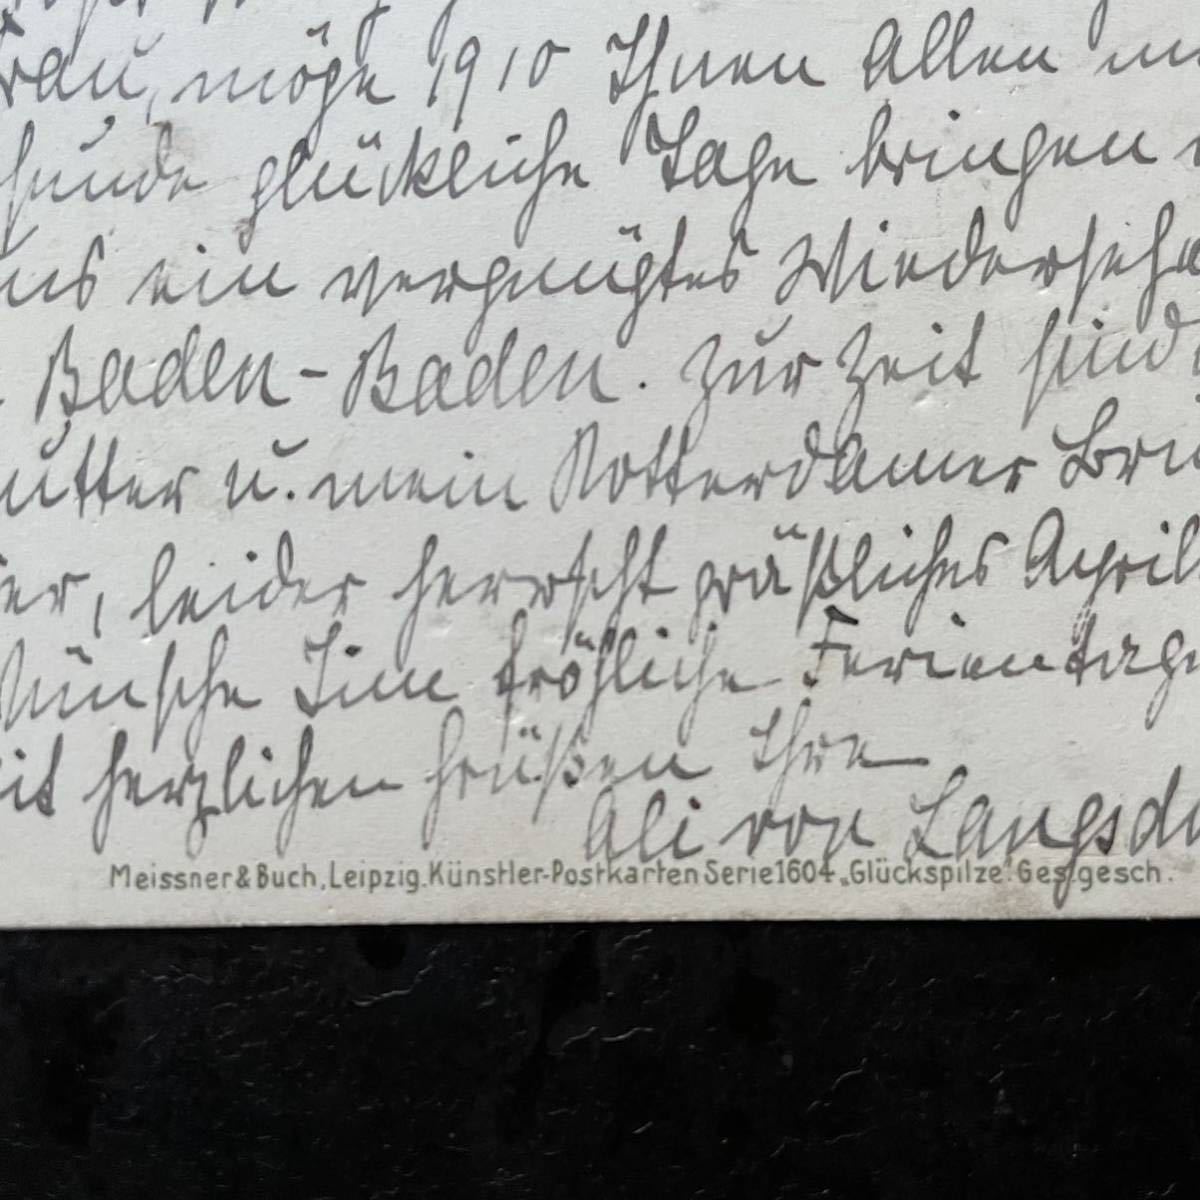 Frau, möge 1910 Ihnen Allen nu
sunde glückliche Tage bringen
uns ein vergnügtes Wiederseh
Baden-Baden. Zur Zeit sind
utter u. mein Rotterdamer Brü
ier, leider herrscht gräßliches April
Wünsche Ihnen fröhliche Ferientage
it herzlichen Grüßen Ihre
Ali von Langsdo
Meissner & Buch, Leipzig. Künstler-Postkarten Serie 1604 „Glückspilze“. Ges. gesch.